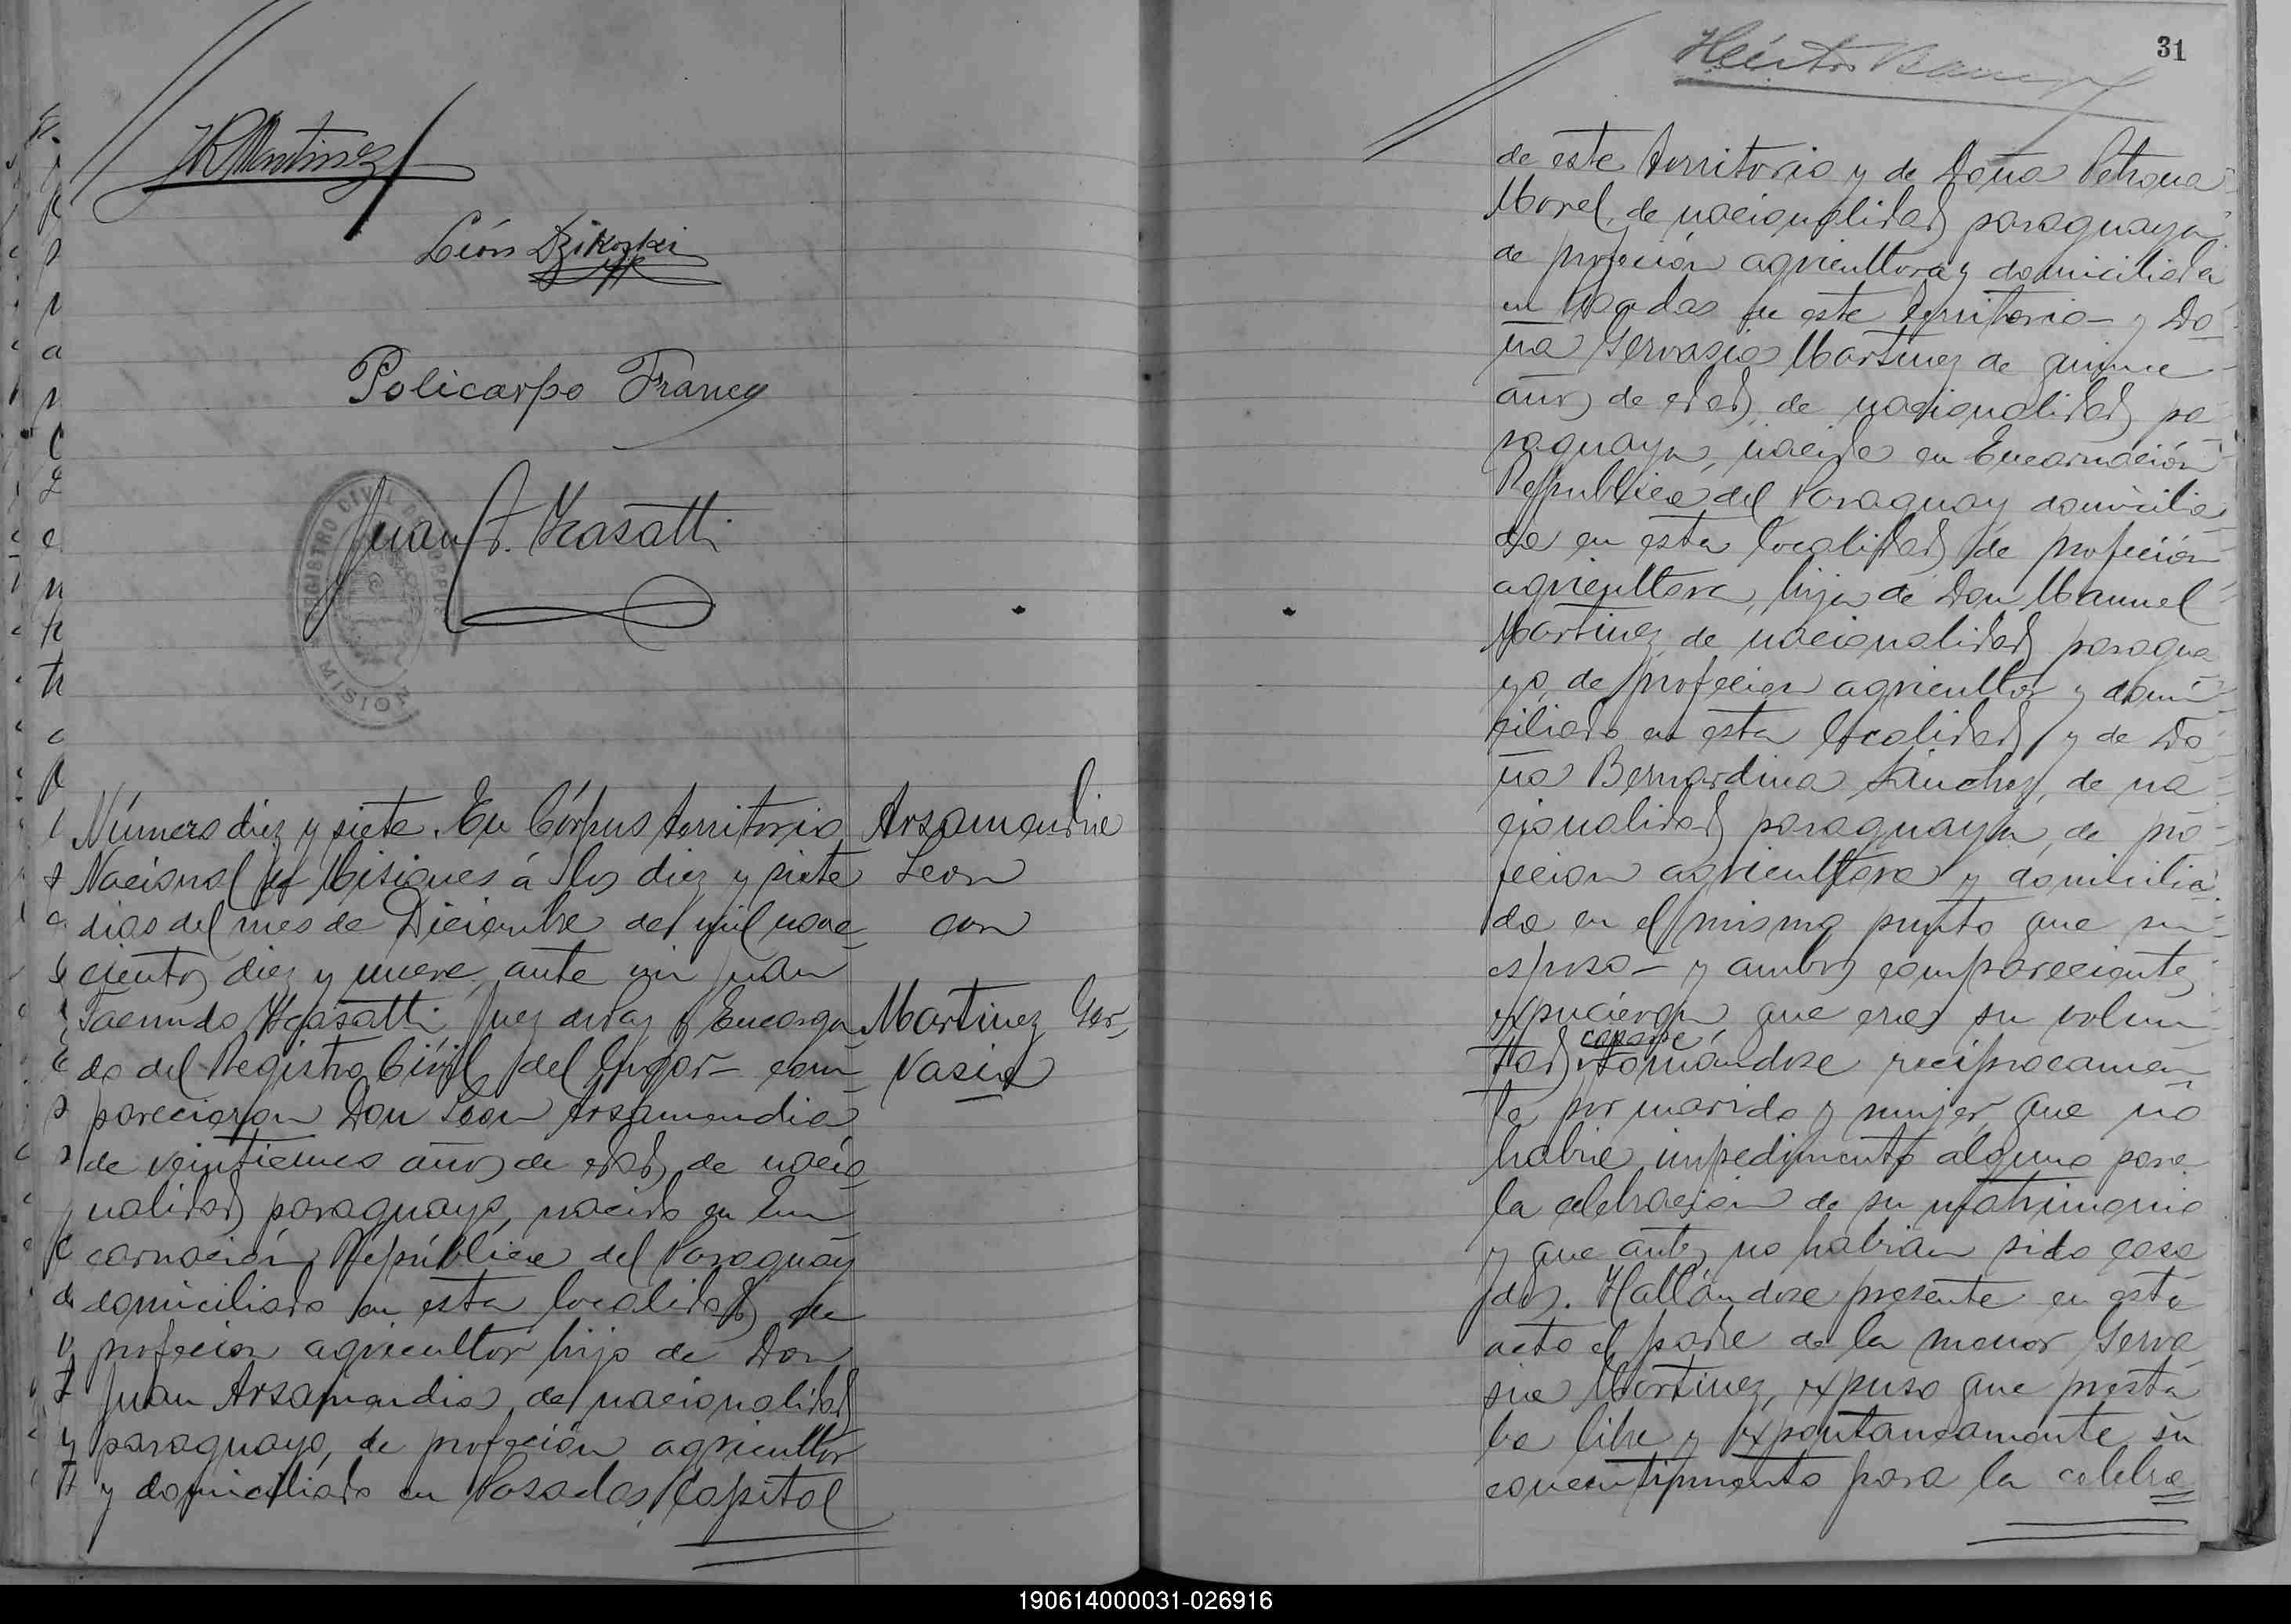 JR Martinez
León Dzikoski
Policarpo Franco
Juan F. Hasatti
REGISTRO CIVIL
MISION
Número diez y siete. En Córpus territorio
Nacional de Misiones á los diez y siete
dias del mes de Diciembre de mil nove-
cientos diez y nueve, ante mi Juan
Facundo Hasatti Juez de Paz y Encarga-
do del Registro Civil del lugar- com-
parecieron Don Leon Arsamendia
de veinticinco años de edad, de nacio-
nalidad paraguayo, nacido en En-
carnación República del Paraguay
domiciliado en esta localidad de
profecion agricultor hijo de Don
Juan Arsamendia, de nacionalidad
paraguayo, de profeción agricultor
y domiciliado en Posadas Capital
Arsamendia
Leon
con
Martinez Ger-
vasia
31
Héctor
de este territorio y de Doña Petrona
Morel, de nacionalidad paraguaya
de profeción agricultora y domiciliada
en Posadas de este territorio- y Do-
ña Gervasia Martinez de quince
años de edad, de nacionalidad pa-
raguaya, nacida en Encarnación
República del Paraguay domicilia-
da en esta localidad de profeción
agricultora, hija de Don Manuel
Martinez, de nacionalidad paragua-
yo, de profecion agricultor y domi-
ciliado en esta localidad y de Do-
ña Bernardina Sánchez, de na-
cionalidad paraguaya, de pro-
fecion agricultora y domicilia-
da en el mismo punto que su
esposo- y ambos compareciente
expucieron que era su volun-
tad tomándose reciprocamen-
te por marido y mujer, que no
habia impedimento alguno para
la celebración de su matrimonio
y que antes no habian sido casa-
dos. Hallándose presente en este
acto el padre de la menor Gerva-
sia Martinez, expuso que presta-
ba libre y expontaneamente su
concentimento para la celebra
190614000031-026916